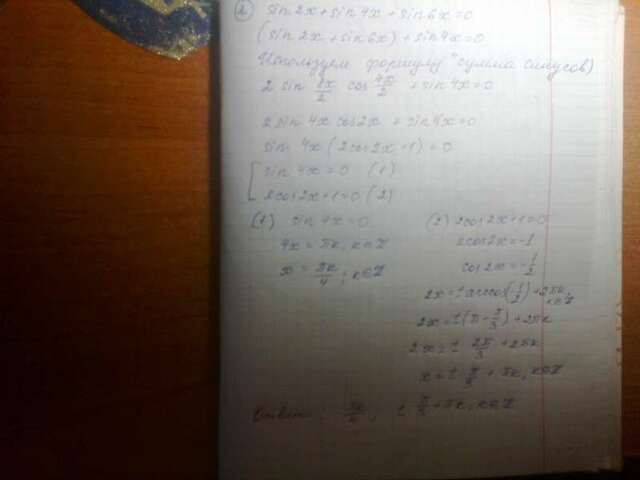 2) sin 2x + sin 4x + sin 6x = 0
(sin 2x + sin 6x) + sin 4x = 0
Используем формулу "сумма синусов)
2 sin 8x/2 cos 4x/2 + sin 4x = 0
2 sin 4x cos 2x + sin 4x = 0
sin 4x (2cos 2x + 1) = 0
[ sin 4x = 0 (1)
2cos 2x + 1 = 0 (2)
(1) sin 4x = 0
4x = πk, k∈Z
x = πk/4, k∈Z
(2) 2cos 2x + 1 = 0
2cos 2x = -1
cos 2x = -1/2
2x = ± arccos(-1/2) + 2πk, k∈Z
2x = ± (π - π/3) + 2πk
2x = ± 2π/3 + 2πk
x = ± π/3 + πk, k∈Z
Ответ: πk/4; ± π/3 + πk, k∈Z